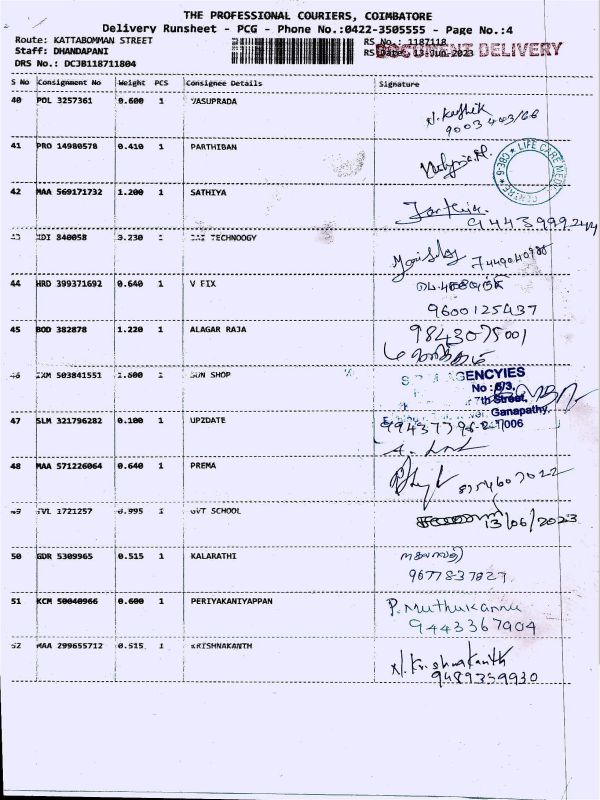 THE PROFESSIONAL COURIERS, COIMBATORE
Delivery Runsheet - PCG - Phone No.:0422-3505555 - Page No.:4
Route: KATTABOMMAN STREET RS No.: 1187118
Staff: DHANDAPANI RS Date: 13-Jun-2023
DOCUMENT DELIVERY
DRS No.: DCJB118711804
S No Consignment No Weight PCS Consignee Details Signature
40 PDL 3257361 0.600 1 VASUPRADA
41 PRO 14980578 0.410 1 PARTHIBAN
LIFE CARE MEDI CENTRE
42 MAA 569171732 1.200 1 SATHIYA
43 IDI 840058 3.230 1 TECHNOOGY
44 HRD 399371692 0.640 1 V FIX
9600125437
45 BOD 382878 1.220 1 ALAGAR RAJA
9843075001
46 503841551 1.600 1 SUN SHOP
AGENCYIES
No : 6/3,
7th Street,
Ganapathy,
47 SLM 321796282 0.100 1 UPZDATE
48 MAA 571226064 0.640 1 PREMA
8754607022
49 TVL 1721257 0.995 1 GVT SCHOOL
13/06/2023
50 GDR 5309965 0.515 1 KALARATHI
9677837827
51 KCM 50040966 0.600 1 PERIYAKANIYAPPAN
P. Muthukannu
9443367904
52 MAA 299655712 0.515 1 KRISHNAKANTH
N. Krishnakanth
9489359930